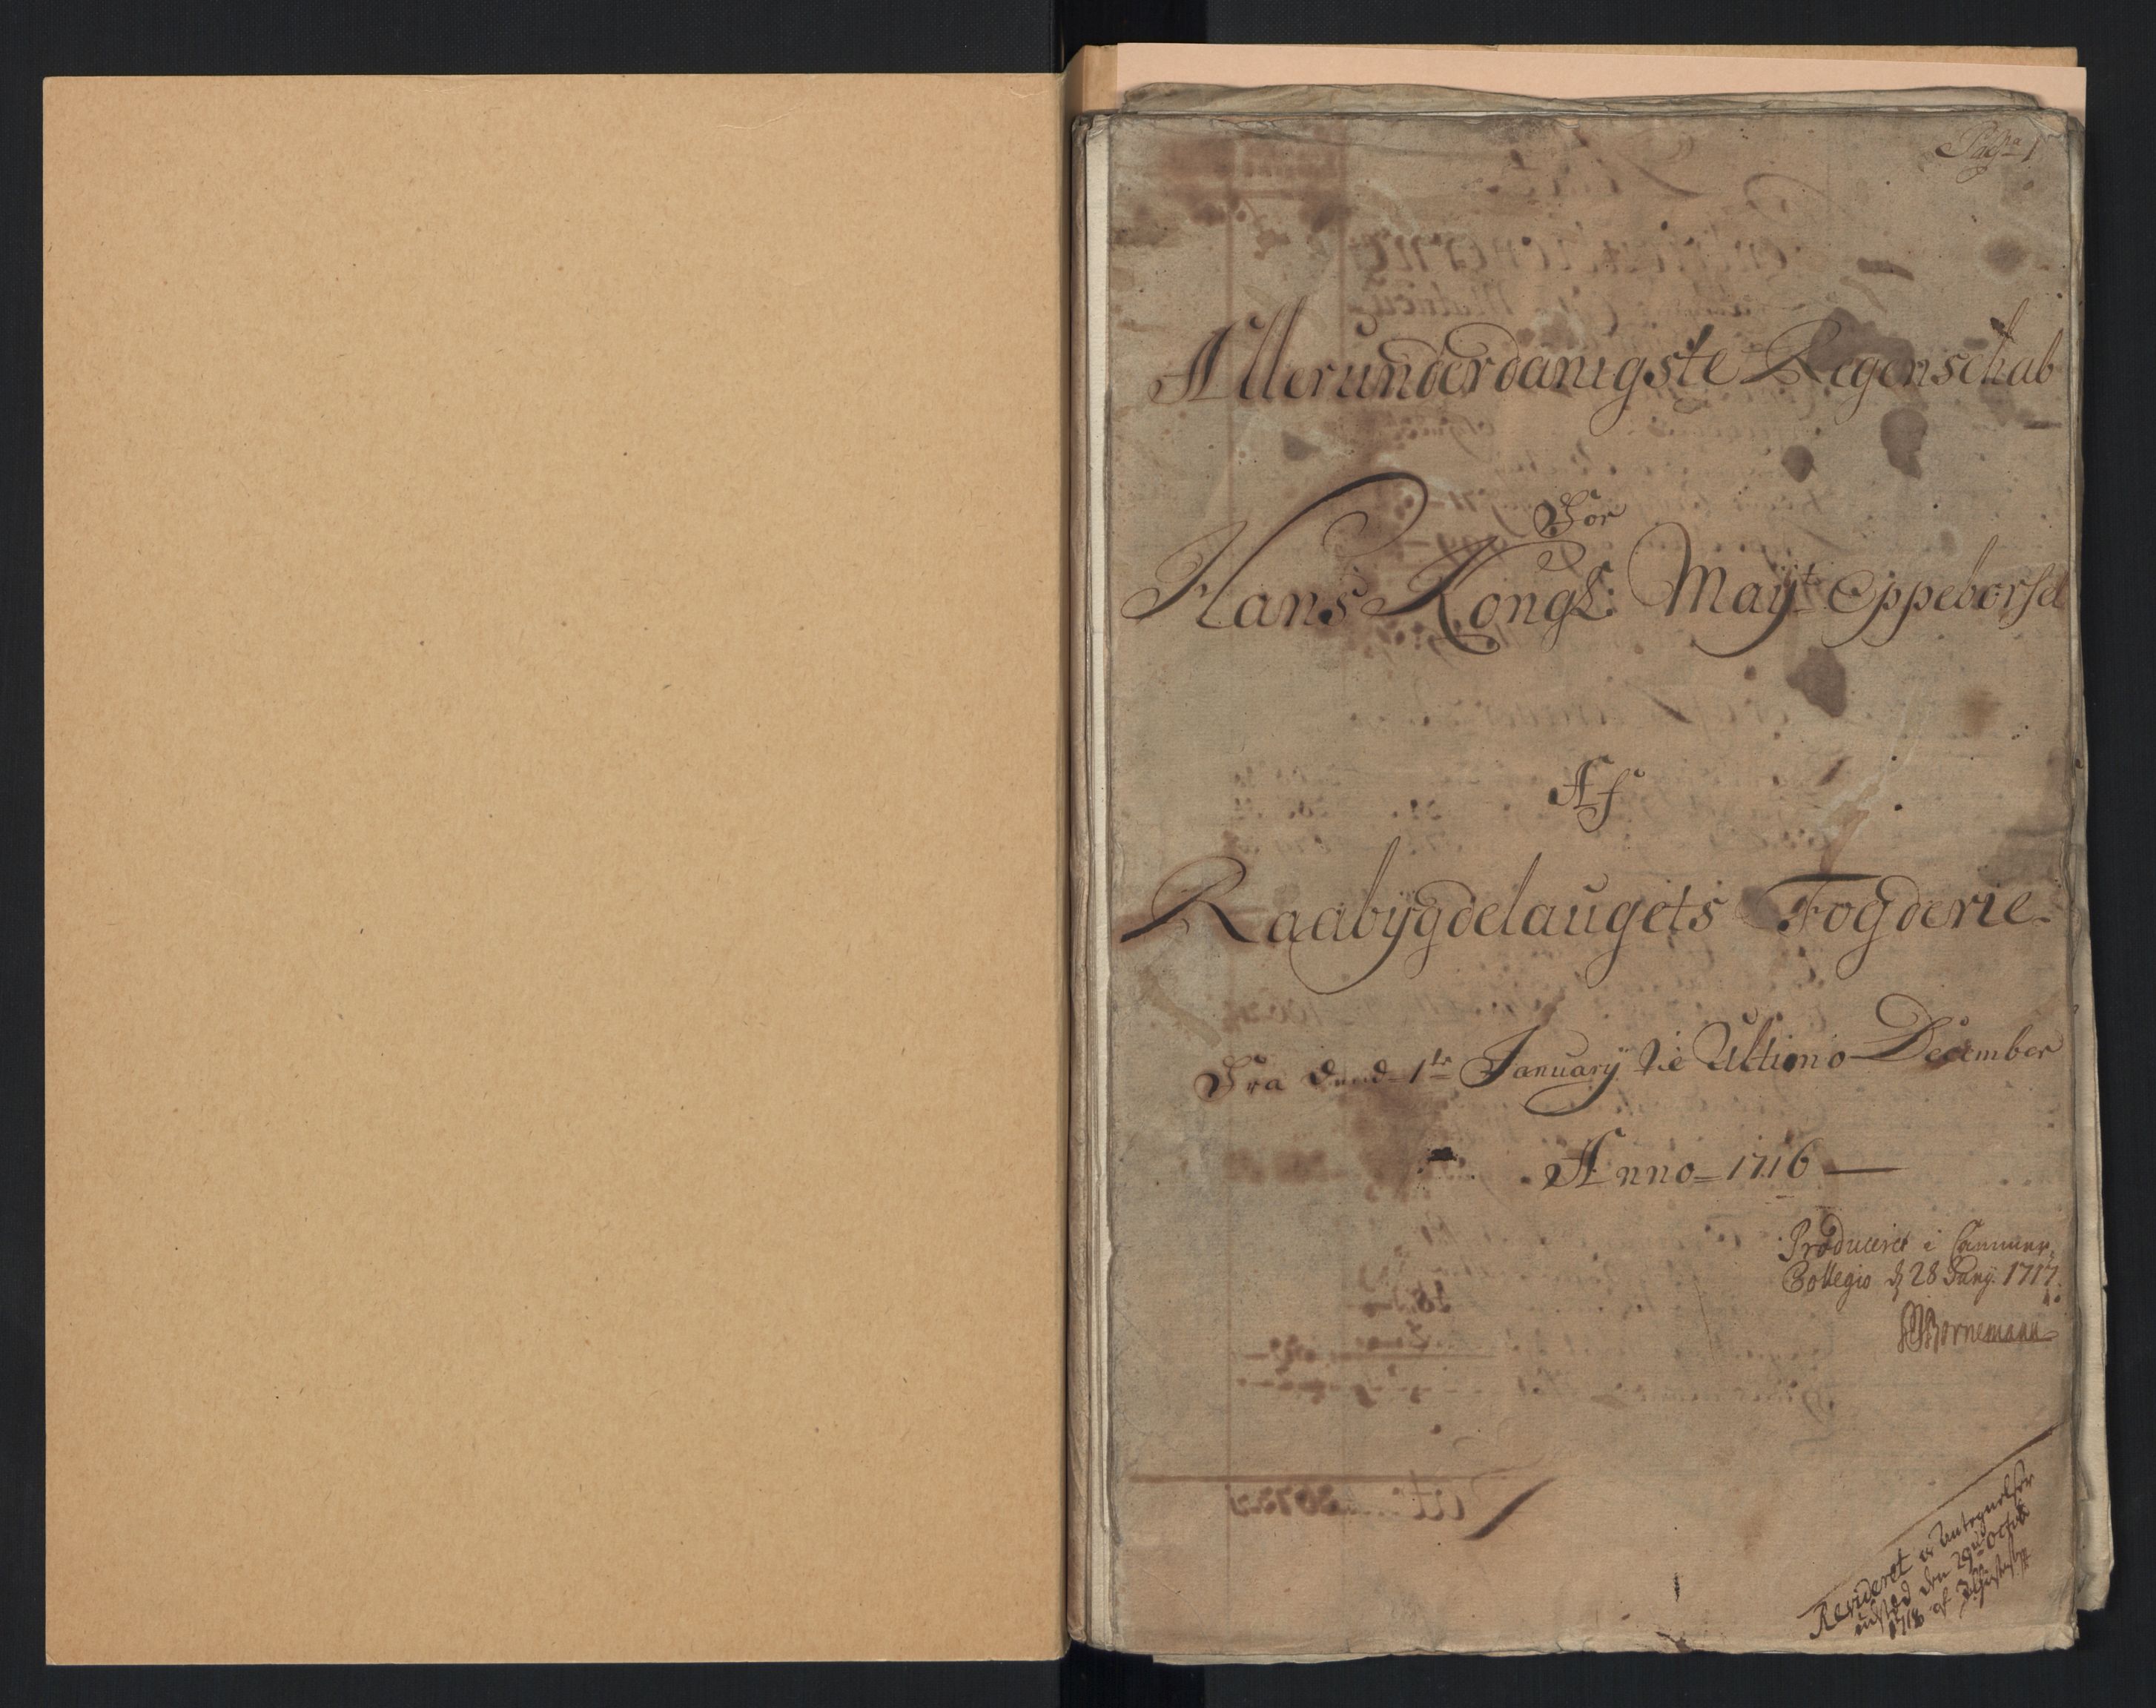 Pag: 1
Allerunderdanigste Regenschab
For
Hans Kongl: Mayt: Oppebørsel
Af
Raabÿgdelaugets Fogderie
Fra dend 1te Januarÿ til Ultimo December
Anno 1716
Produceret i Cammer
Collegio d 28 Junÿ 1717.
Bornemann
Revideret og Antegnelser
udsted den 29 Octob
1718 af